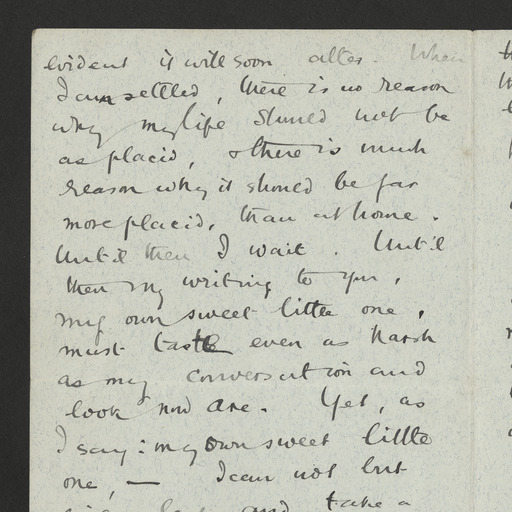 evident it will soon alter. When
I am settled, there is no reason
why my life should not be
as placid, & there is much
reason why it should be far
more placid, than at home.
Until then I wait. Until
then my writing to you,
my own sweet little one,
must taste even as harsh
as my conversation and
look now are. Yet, as
I say: my own sweet little
one, — I can not but
and take a